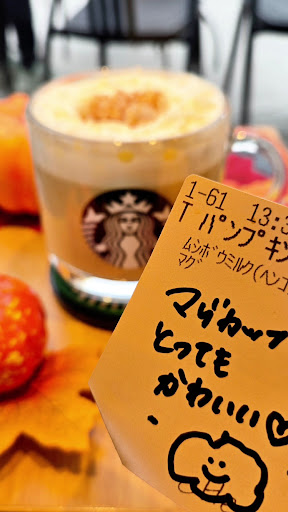 1-61 13:3
T パンプキン
ムシボウミルク(ヘンコ
マグ
マグカップ
とっても
かわいい♡